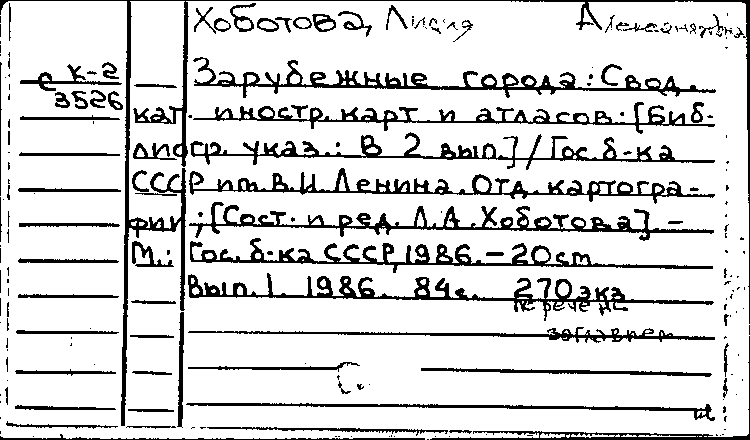 Хоботова, Лидия Александровна
с к-2
3526
Зарубежные города: Свод.
кат. иностр. карт и атласов: [Биб-
лиогр. указ.: В 2 вып.] / Гос. б-ка
СССР им. В.И. Ленина. Отд. картогра-
фии; [Сост. и ред. Л.А. Хоботова]. –
М.: Гос. б-ка СССР, 1986. – 20 см
Вып. 1. 1986. 84 с. 270 экз
С.